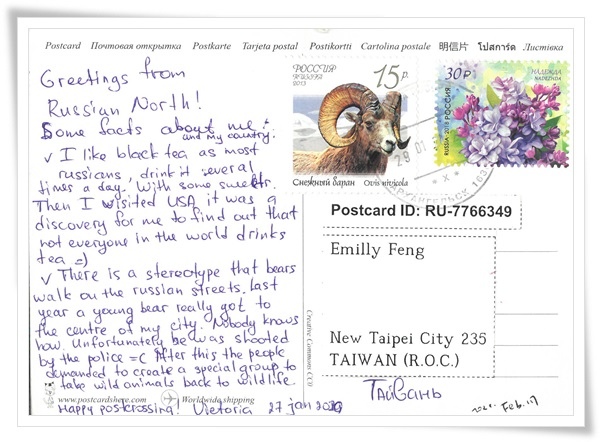 Postcard Почтовая открытка Postkarte Tarjeta postal Postikortti Cartolina postale 明信片 โปสการ์ด Листівка
Greetings from
Russian North!
Some facts about me
and my country:
✓ I like black tea as most
russians, drink it several
times a day. With some sweets.
Then I visited USA it was a
discovery for me to find out that
not everyone in the world drinks
tea =)
✓ There is a stereotype that bears
walk on the russian streets. Last
year a young bear really got to
the centre of my city. Nobody knows
how. Unfortunately he was shooted
by the police =( After this the people
demanded to create a special group to
take wild animals back to wildlife.
Happy postcrossing! Victoria 27 jan
www.postcardshere.com Worldwide shipping
Creative Commons CC0
РОССИЯ
RUSSIA
2013
15р.
Снежный баран Ovis nivicola
30₽
НАДЕЖДА
NADEZHDA
RUSSIA 2018 РОССИЯ
29 01
АРХАНГЕЛЬСК
Postcard ID: RU-7766349
Emilly Feng
New Taipei City 235
TAIWAN (R.O.C.)
Тайвань
Feb. 17